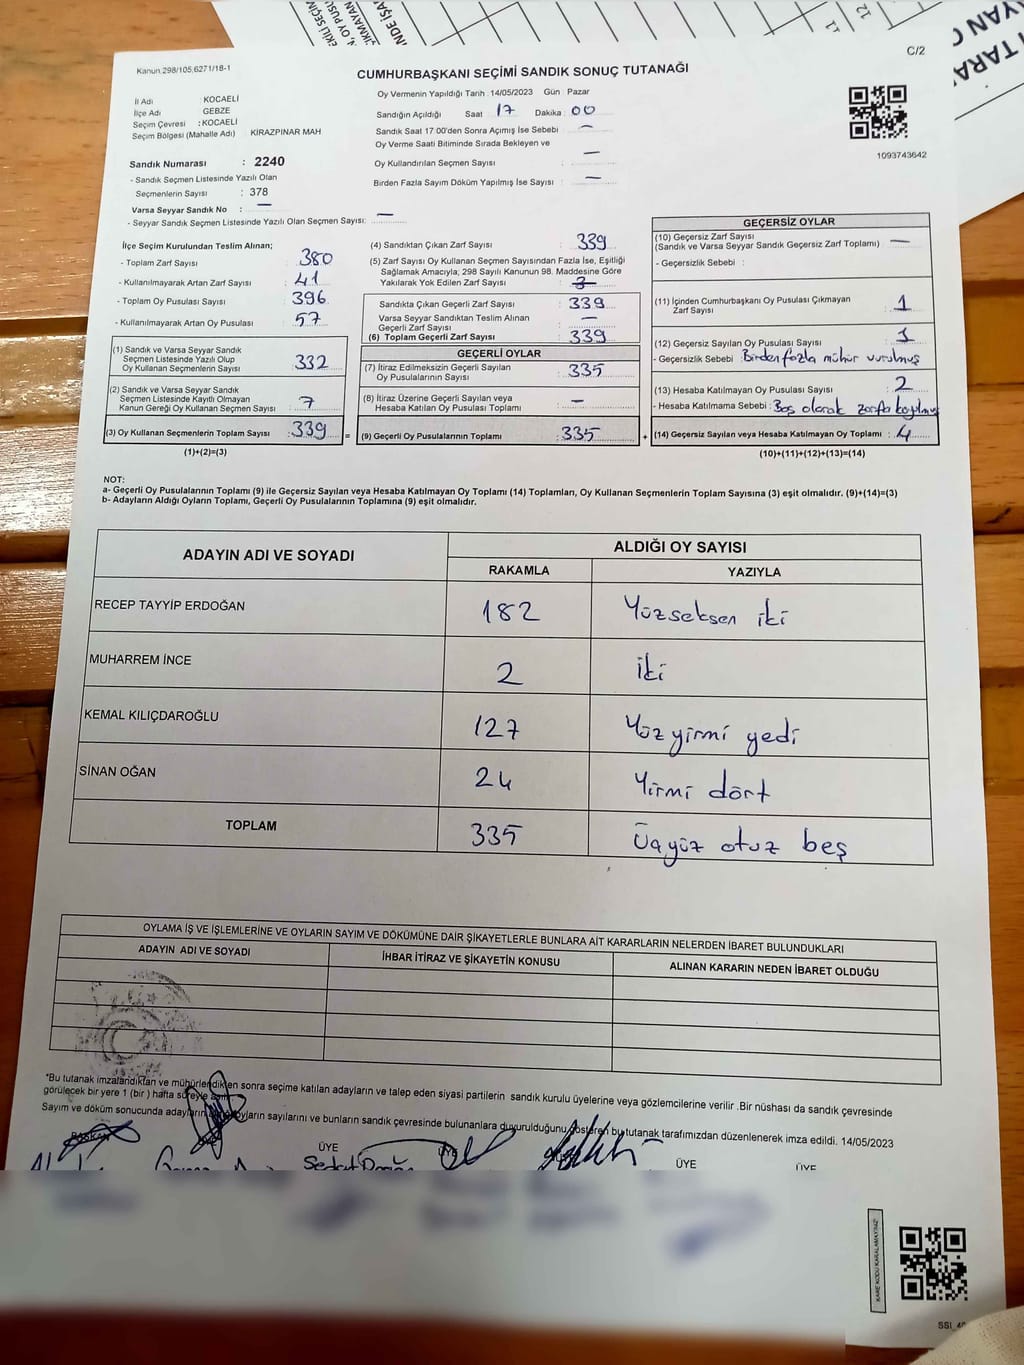 EKİLİ SEÇİM
N, OY PUSU
ÇIKMAYAN
NDE İŞA
11
12
YAN O
TARA
C/2
Kanun:298/105,6271/18-1
CUMHURBAŞKANI SEÇİMİ SANDIK SONUÇ TUTANAĞI
Oy Vermenin Yapıldığı Tarih : 14/05/2023 Gün : Pazar
İl Adı : KOCAELİ
İlçe Adı : GEBZE
Seçim Çevresi : KOCAELİ
Seçim Bölgesi (Mahalle Adı) : KİRAZPINAR MAH
Sandığın Açıldığı Saat : 17 Dakika : 00
Sandık Saat 17:00'den Sonra Açılmış İse Sebebi : —
Oy Verme Saati Bitiminde Sırada Bekleyen ve
Oy Kullandırılan Seçmen Sayısı : —
Birden Fazla Sayım Döküm Yapılmış İse Sayısı : —
1093743642
Sandık Numarası : 2240
- Sandık Seçmen Listesinde Yazılı Olan
Seçmenlerin Sayısı : 378
Varsa Seyyar Sandık No : —
- Seyyar Sandık Seçmen Listesinde Yazılı Olan Seçmen Sayısı: —
İlçe Seçim Kurulundan Teslim Alınan;
- Toplam Zarf Sayısı : 380
- Kullanılmayarak Artan Zarf Sayısı : 41
- Toplam Oy Pusulası Sayısı : 396
- Kullanılmayarak Artan Oy Pusulası : 57
(1) Sandık ve Varsa Seyyar Sandık
Seçmen Listesinde Yazılı Olup
Oy Kullanan Seçmenlerin Sayısı : 332
(2) Sandık ve Varsa Seyyar Sandık
Seçmen Listesinde Kayıtlı Olmayan
Kanun Gereği Oy Kullanan Seçmen Sayısı : 7
(3) Oy Kullanan Seçmenlerin Toplam Sayısı : 339
(1)+(2)=(3)
(4) Sandıktan Çıkan Zarf Sayısı : 339
(5) Zarf Sayısı Oy Kullanan Seçmen Sayısından Fazla İse, Eşitliği
Sağlamak Amacıyla; 298 Sayılı Kanunun 98. Maddesine Göre
Yakılarak Yok Edilen Zarf Sayısı :
Sandıkta Çıkan Geçerli Zarf Sayısı : 339
Varsa Seyyar Sandıktan Teslim Alınan
Geçerli Zarf Sayısı : —
(6) Toplam Geçerli Zarf Sayısı : 339
GEÇERLİ OYLAR
(7) İtiraz Edilmeksizin Geçerli Sayılan
Oy Pusulalarının Sayısı : 335
(8) İtiraz Üzerine Geçerli Sayılan veya
Hesaba Katılan Oy Pusulası Toplamı : —
= (9) Geçerli Oy Pusulalarının Toplamı : 335 +
GEÇERSİZ OYLAR
(10) Geçersiz Zarf Sayısı
(Sandık ve Varsa Seyyar Sandık Geçersiz Zarf Toplamı) : —
- Geçersizlik Sebebi :
(11) İçinden Cumhurbaşkanı Oy Pusulası Çıkmayan
Zarf Sayısı : 1
(12) Geçersiz Sayılan Oy Pusulası Sayısı : 1
- Geçersizlik Sebebi : Birden fazla mühür vurulmuş
(13) Hesaba Katılmayan Oy Pusulası Sayısı : 2
- Hesaba Katılmama Sebebi : Boş olarak zarfa koyulmuş
(14) Geçersiz Sayılan veya Hesaba Katılmayan Oy Toplamı : 4
(10)+(11)+(12)+(13)=(14)
NOT:
a- Geçerli Oy Pusulalarının Toplamı (9) ile Geçersiz Sayılan veya Hesaba Katılmayan Oy Toplamı (14) Toplamları, Oy Kullanan Seçmenlerin Toplam Sayısına (3) eşit olmalıdır. (9)+(14)=(3)
b- Adayların Aldığı Oyların Toplamı, Geçerli Oy Pusulalarının Toplamına (9) eşit olmalıdır.
ADAYIN ADI VE SOYADI ALDIĞI OY SAYISI
RAKAMLA YAZIYLA
RECEP TAYYİP ERDOĞAN 182 Yüzseksen iki
MUHARREM İNCE 2 iki
KEMAL KILIÇDAROĞLU 127 Yüz yirmi yedi
SİNAN OĞAN 24 Yirmi dört
TOPLAM 335 Üçyüz otuz beş
OYLAMA İŞ VE İŞLEMLERİNE VE OYLARIN SAYIM VE DÖKÜMÜNE DAİR ŞİKAYETLERLE BUNLARA AİT KARARLARIN NELERDEN İBARET BULUNDUKLARI
ADAYIN ADI VE SOYADI İHBAR İTİRAZ VE ŞİKAYETİN KONUSU ALINAN KARARIN NEDEN İBARET OLDUĞU
*Bu tutanak imzalandıktan ve mühürlendikten sonra seçime katılan adayların ve talep eden siyasi partilerin sandık kurulu üyelerine veya gözlemcilerine verilir .Bir nüshası da sandık çevresinde
görülecek bir yere 1 (bir ) hafta süreyle asılır.
Sayım ve döküm sonucunda adayların oyların sayılarını ve bunların sandık çevresinde bulunanlara duyurulduğunu gösteren bu tutanak tarafımızdan düzenlenerek imza edildi. 14/05/2023
BAŞKAN ÜYE ÜYE ÜYE ÜYE
KARE KODU KARALAMAYINIZ!